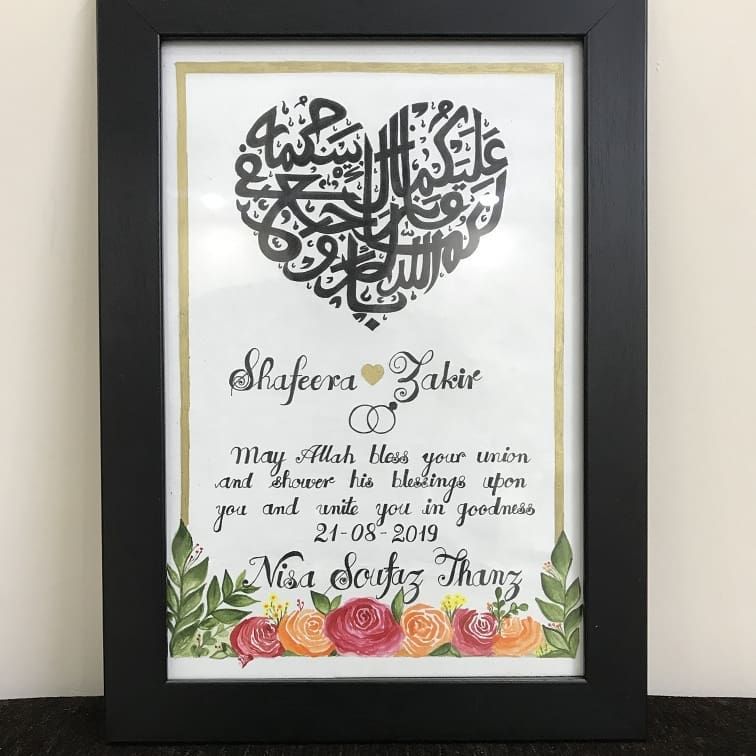 بارك الله لكما وبارك عليكما وجمع بينكما في خير
Shafeera Zakir
May Allah bless your union
and shower his blessings upon
you and unite you in goodness
21-08-2019
Nisa Soufaz Thanz